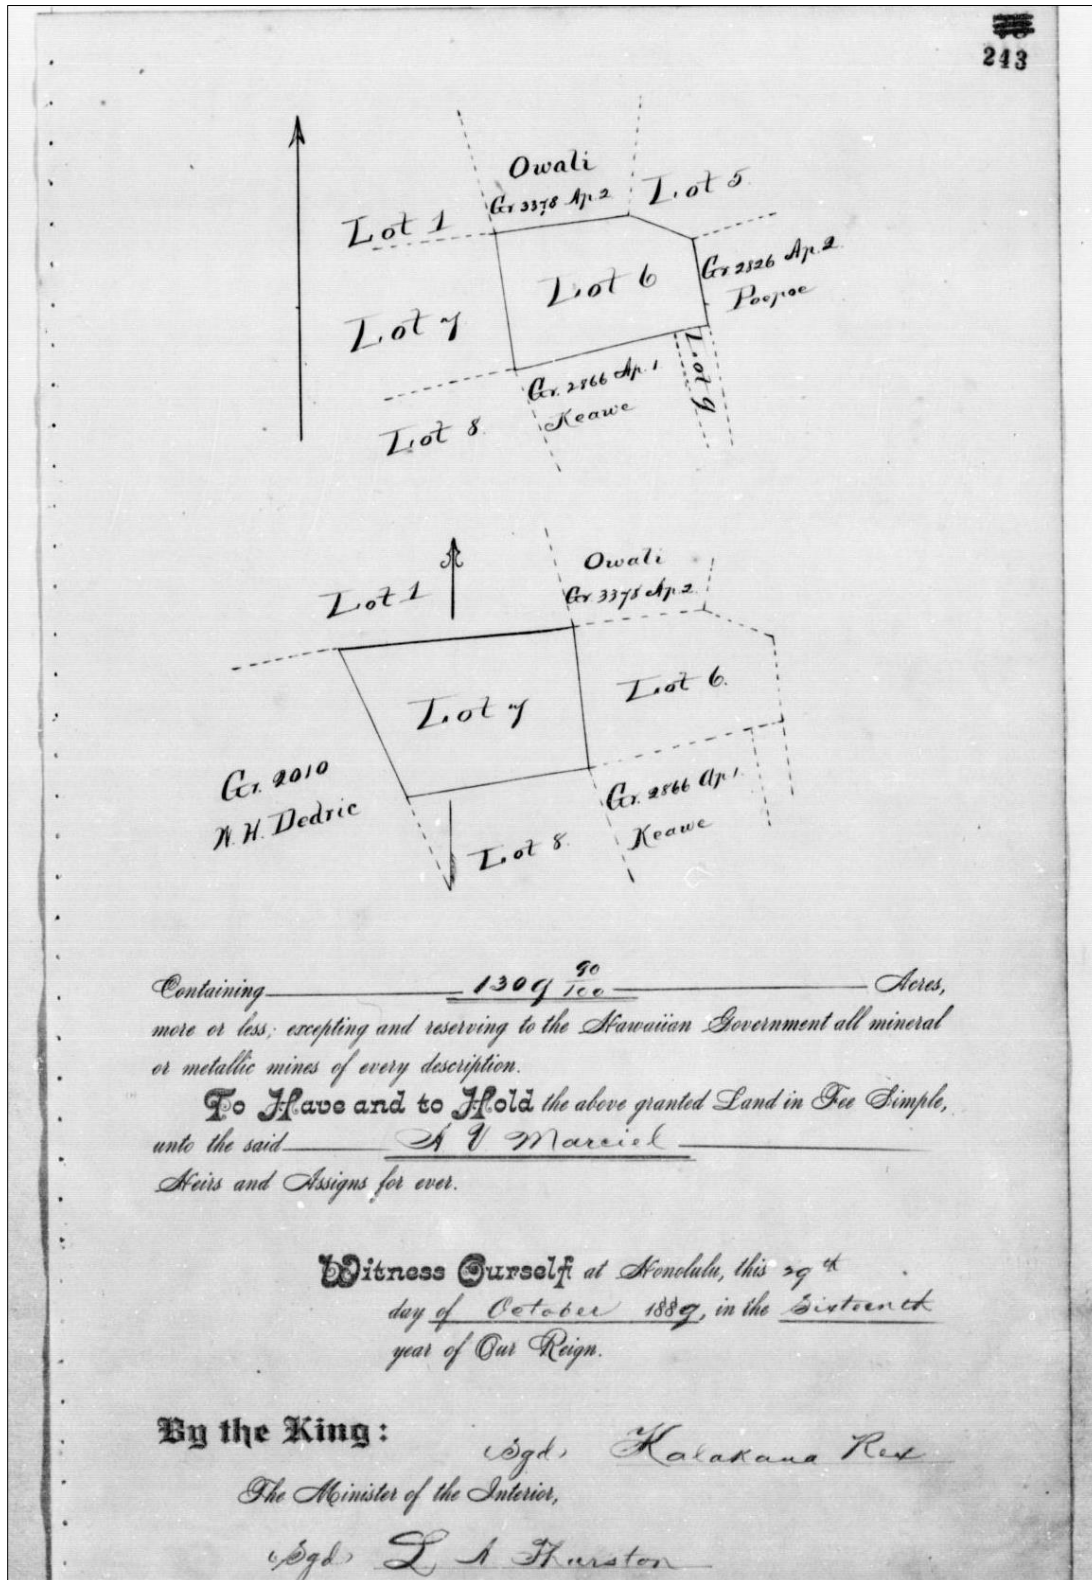 243
Owali
Gr 3378 Ap. 2
Lot 5
Lot 1
Lot 6
Gr 2826 Ap. 2
Poepoe
Lot 7
Gr. 2866 Ap. 1
Keawe
Lot 9
Lot 8
Owali
Gr 3378 Ap. 2
Lot 1
Lot 7
Lot 6.
Gr. 2010
W. H. Dedric
Gr. 2866 Ap 1
Keawe
Lot 8.
Containing 1309 90/100 Acres,
more or less; excepting and reserving to the Hawaiian Government all mineral
or metallic mines of every description.
To Have and to Hold the above granted Land in Fee Simple,
unto the said A V Marciel
Heirs and Assigns for ever.
Witness Ourself at Honolulu, this 29th
day of October 1889, in the Sixteenth
year of Our Reign.
By the King:
(Sgd) Kalakaua Rex
The Minister of the Interior,
(Sgd) L A Thurston